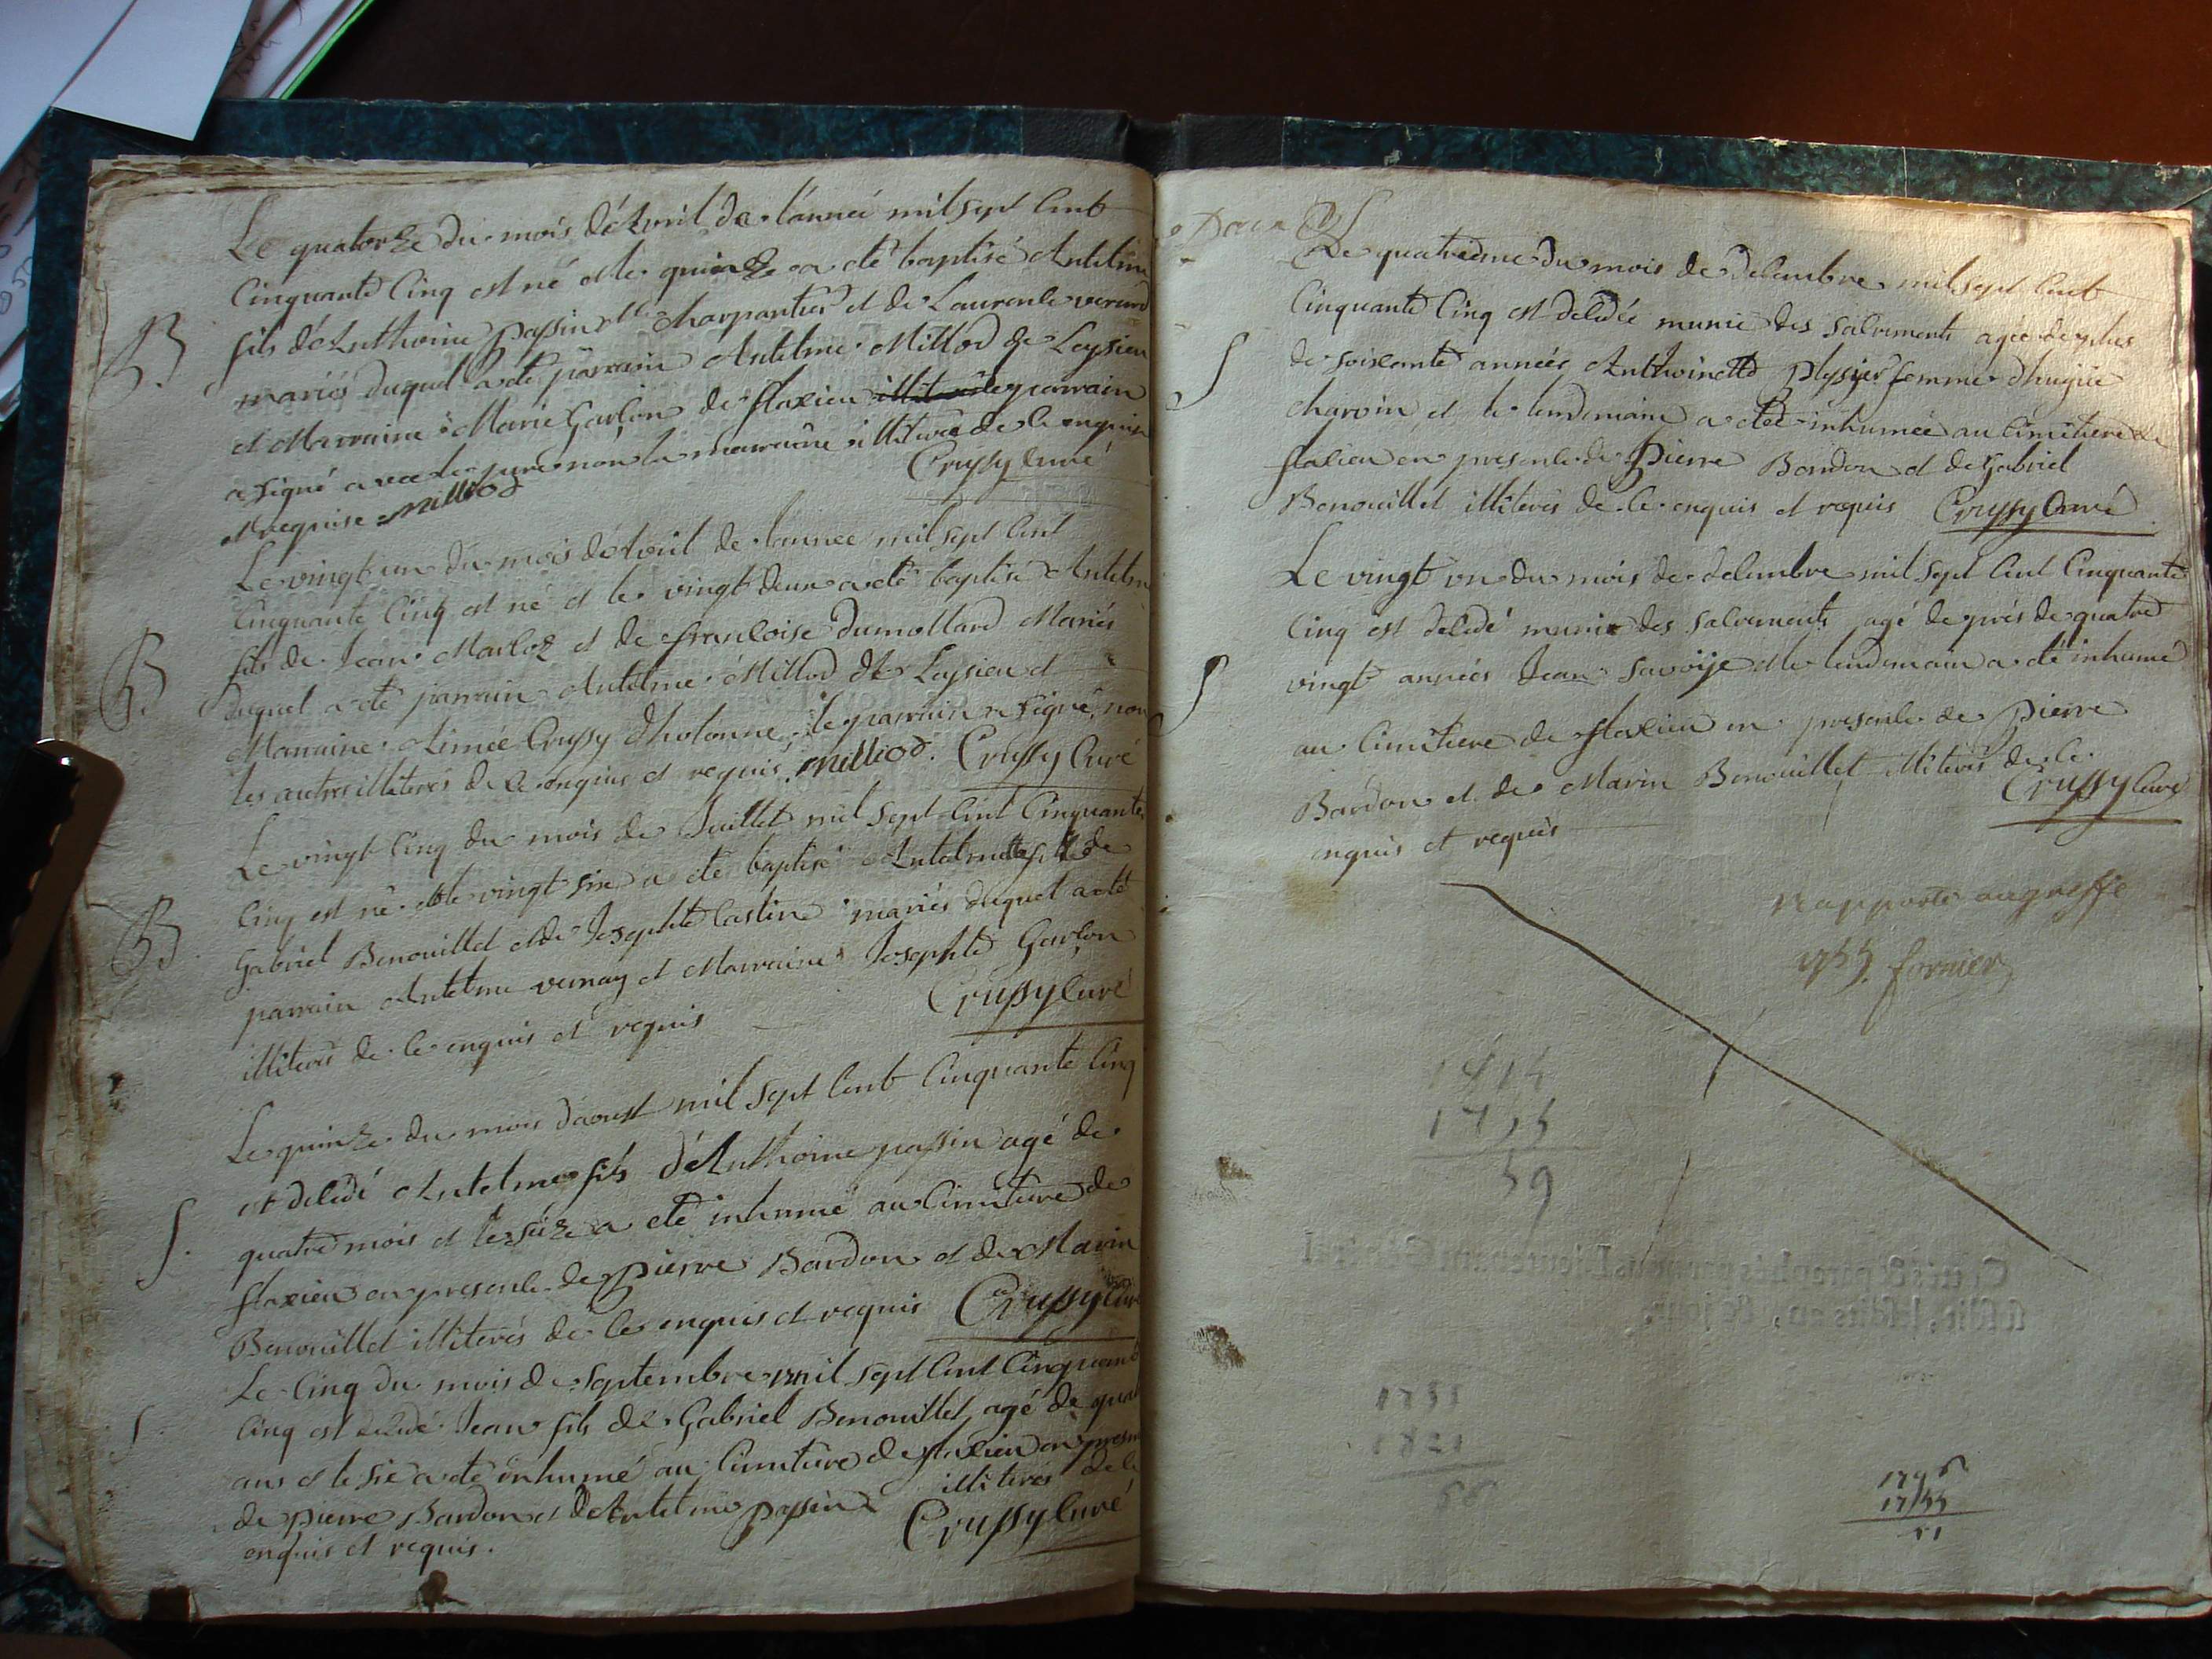 Le quatorze du mois d'Avril de l'année mil sept cent
cinquante cinq est né et le quinze a été baptisé Antelme
B.
fils d'Anthoine passin charpantier et de Laurence
mariés duquel a été parrain Antelme Milliod de Leysieu
et Marraine Marie Garçon de flaxieu parrain
a signé avec le curé non la marraine illiterée de ce enquise
et requise milliod Crussy curé
Le vingt un du mois d'Avril de l'annee mil sept cent
cinquante cinq est né et le vingt deux a été baptisé Antelme
B.
fils de Jean Marloz et de françoise Dumollard Mariés
duquel a été parrain Antelme Milliod de Leysieu et
Marraine Aimée Crussy d'hotonne, le parrain a signé, non
les autres illiterés de ce enquis et requis. milliod. Crussy Curé
Le vingt cinq du mois de Juillet mil sept cent cinquante
cinq est né et le vingt six a été baptisé fils de
B.
Gabriel Benouillet et de Josephte Castin mariés duquel a été
parrain Antelme vernay et Marraine Josephte Garçon
illiterés de ce enquis et requis Crussy curé
Le quinze du mois d'aoust mil sept cent cinquante cinq
et decedé Antelme fils d'Anthoine passin agé de
S.
quatre mois et le seize a été inhumé au cimitiere de
flaxieu en presence de pierre Bardon et de Marin
Benouillet illiterés de ce enquis et requis Crussy Curé
Le cinq du mois de septembre mil sept cent cinquante
S.
cinq est decedé Jean fils de Gabriel Benouillet agé de
ans et le six a été inhumé au cimitiere de flaxieu en
de pierre Bardon et d'Antelme passin illiterés de ce
enquis et requis. Crussy Curé
Le quatrieme du mois de decembre mil sept cent
cinquante cinq est decedée munie des sacrements agée de plus
S
de soixante années Anthoinette femme d'hugue
charvin et le lendemain a été inhumée au cimitiere de
flaxieu en presence de pierre Bardon et de Gabriel
Benouillet illiterés de ce enquis et requis Crussy Curé
Le vingt un du mois de decembre mil sept cent cinquante
cinq est decedé munie des sacrements agé de prés de quatre
S
vingt années Jean savoije et le lendemain a été inhumé
au cimitiere de flaxieu en presence de pierre
Bardon et de Marin Benouillet illiterés de ce
enquis et requis Crussy curé
rapporté au greffe
1755. fornier
1814
1755
59
1796
1755
41